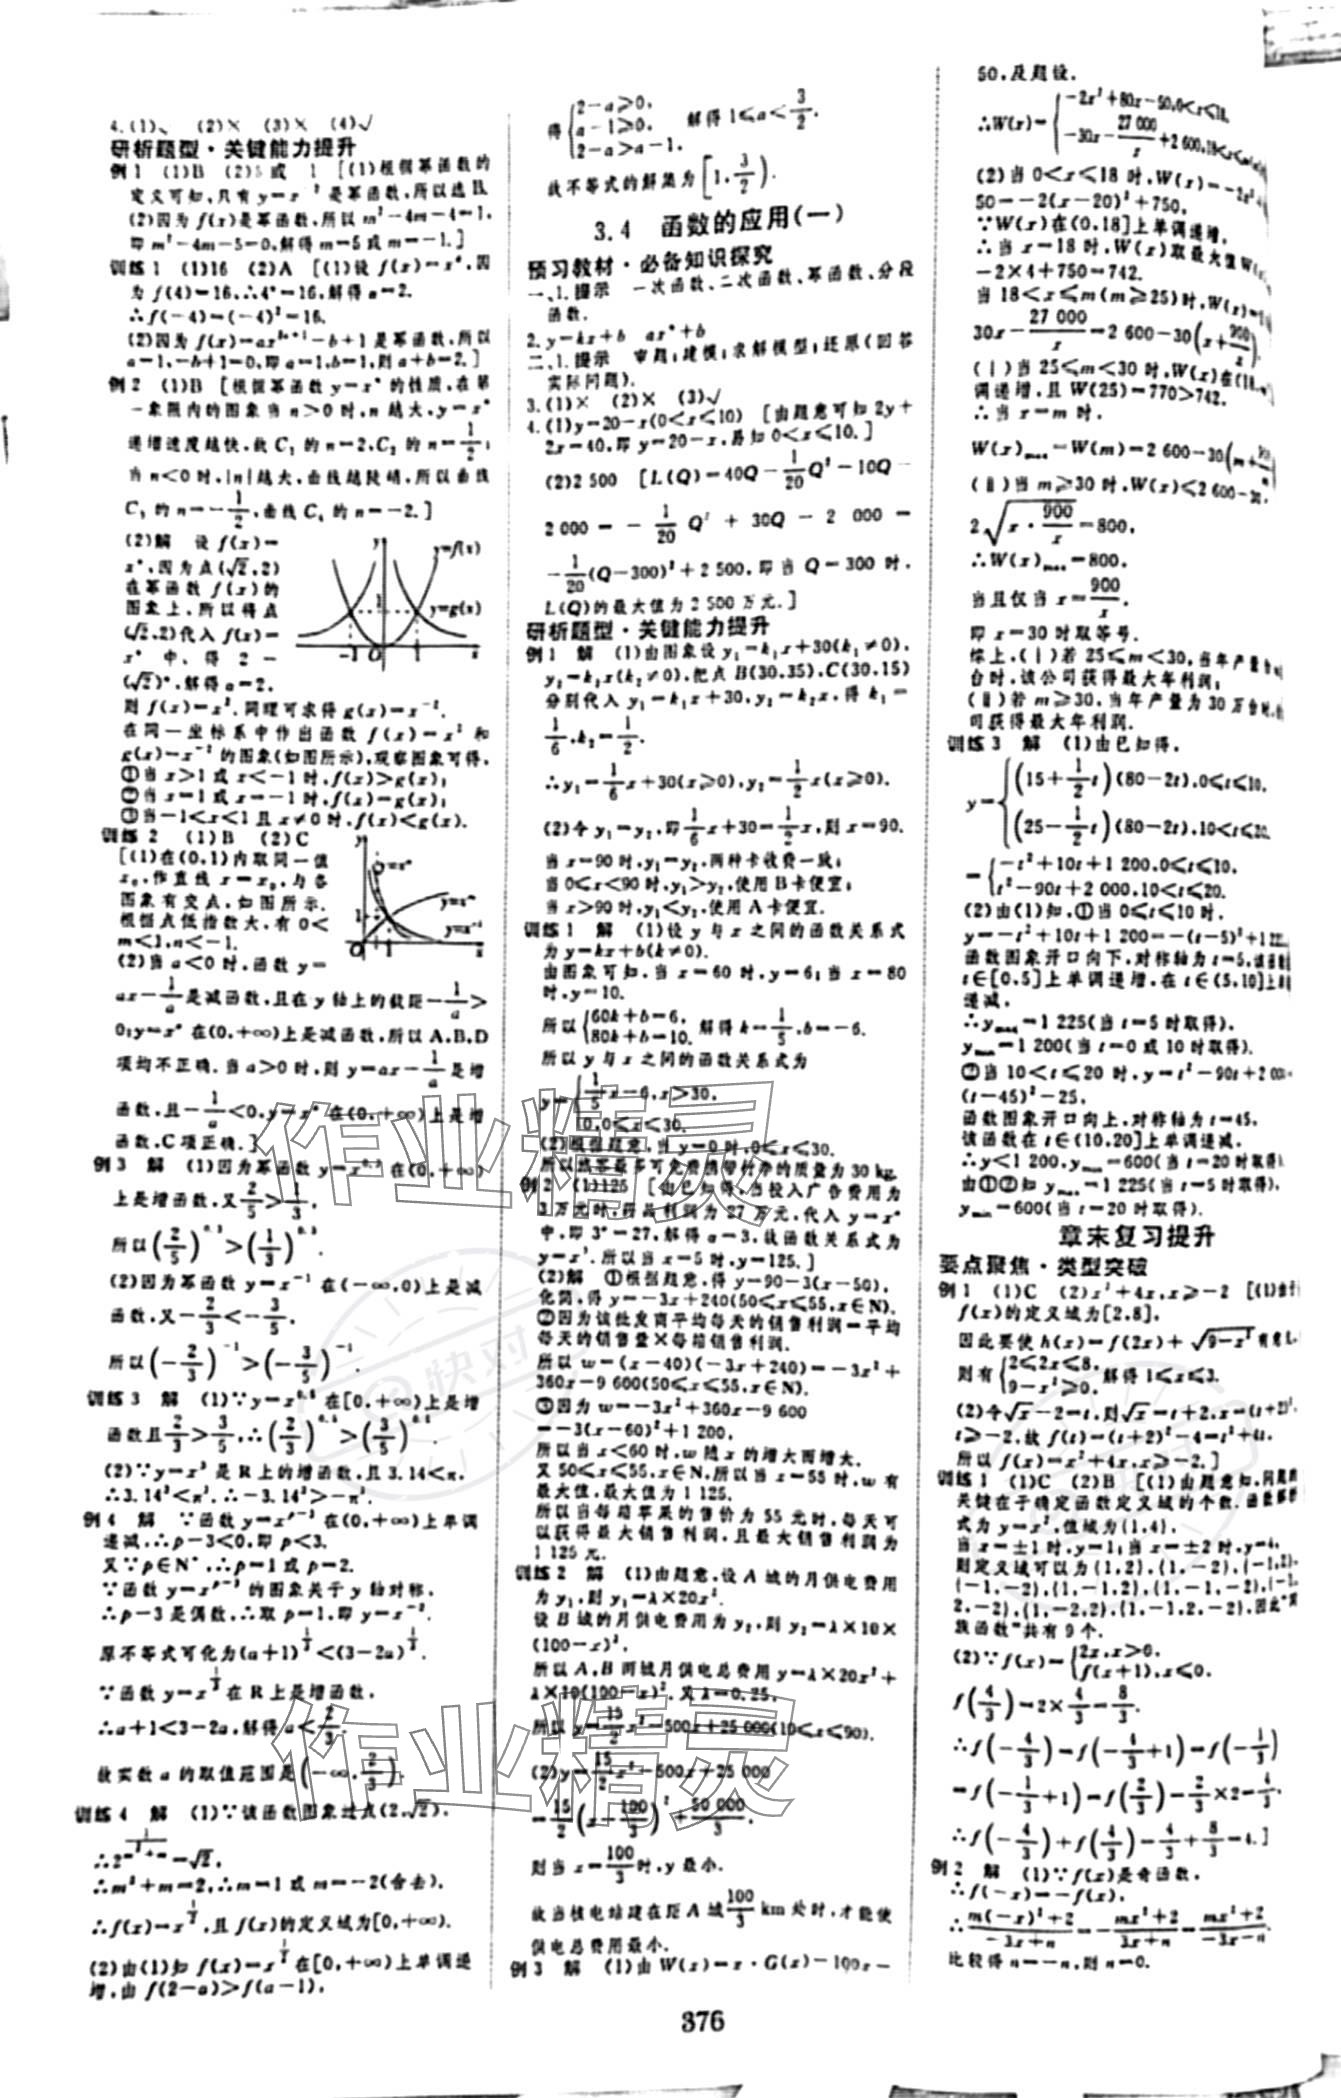 4.(1)√ (2)× (3)× (4)√
研析题型·关键能力提升
例1 (1)B (2)5或-1 [(1)根据幂函数的
定义可知,只有y=x⁻²是幂函数,所以选B.
(2)因为f(x)是幂函数,所以m²-4m-4=1,
即m²-4m-5=0,解得m=5或m=-1.]
训练1 (1)16 (2)A [(1)设f(x)=xᵅ,因
为f(4)=16,∴4ᵅ=16,解得α=2.
∴f(-4)=(-4)²=16.
(2)因为f(x)=ax²ᵃ⁺¹-b+1是幂函数,所以
a=1,-b+1=0,即a=1,b=1,则a+b=2.]
例2 (1)B [根据幂函数y=xⁿ的性质,在第
一象限内的图象当n>0时,n越大,y=xⁿ
递增速度越快,故C₁的n=2,C₂的n=1/2;
当n<0时,|n|越大,曲线越陡峭,所以曲线
C₃的n=-1/2,曲线C₄的n=-2.]
(2)解 设f(x)=
xᵅ,因为点(√2,2)
在幂函数f(x)的
图象上,所以将点
(√2,2)代入f(x)=
xᵅ中,得2=
(√2)ᵅ,解得α=2,
y
y=f(x)
y=g(x)
1
-1 O 1 x
则f(x)=x².同理可求得g(x)=x⁻².
在同一坐标系中作出函数f(x)=x²和
g(x)=x⁻²的图象(如图所示),观察图象可得,
①当x>1或x<-1时,f(x)>g(x);
②当x=1或x=-1时,f(x)=g(x);
③当-1<x<1且x≠0时,f(x)<g(x).
训练2 (1)B (2)C
[(1)在(0,1)内取同一值
x₀,作直线x=x₀,与各
图象有交点,如图所示.
根据点低指数大,有0<
m<1,n<-1.
y
y=xⁿ
y=xᵐ
y=x⁻¹
1
O 1 x
(2)当a<0时,函数y=
ax-1/a是减函数,且在y轴上的截距-1/a>
0;y=xᵃ在(0,+∞)上是减函数,所以A,B,D
项均不正确.当a>0时,则y=ax-1/a是增
函数,且-1/a<0,y=xᵃ在(0,+∞)上是增
函数,C项正确.]
例3 解 (1)因为幂函数y=x⁰·³在(0,+∞)
上是增函数,又2/5>1/3,
所以(2/5)⁰·³>(1/3)⁰·³.
(2)因为幂函数y=x⁻¹在(-∞,0)上是减
函数,又-2/3<-3/5,
所以(-2/3)⁻¹>(-3/5)⁻¹.
训练3 解 (1)∵y=x⁰·⁵在[0,+∞)上是增
函数且2/3>3/5,∴(2/3)⁰·⁵>(3/5)⁰·⁵.
(2)∵y=x³是R上的增函数,且3.14<π,
∴3.14³<π³,∴-3.14³>-π³.
例4 解 ∵函数y=xᵖ⁻³在(0,+∞)上单调
递减,∴p-3<0,即p<3.
又∵p∈N*,∴p=1或p=2.
∵函数y=xᵖ⁻³的图象关于y轴对称,
∴p-3是偶数,∴取p=1,即y=x⁻².
原不等式可化为(a+1)^(1/3)<(3-2a)^(1/3).
∵函数y=x^(1/3)在R上是增函数,
∴a+1<3-2a,解得a<2/3.
故实数a的取值范围是(-∞,2/3).
训练4 解 (1)∵该函数图象过点(2,√2),
∴2^(1/(m²+m))=√2,
∴m²+m=2,∴m=1或m=-2(舍去),
∴f(x)=x^(1/2),且f(x)的定义域为[0,+∞).
(2)由(1)知f(x)=x^(1/2)在[0,+∞)上单调递
增,由f(2-a)>f(a-1),
得{2-a≥0,
a-1≥0,
2-a>a-1, 解得1≤a<3/2.
故不等式的解集为[1,3/2).
3.4 函数的应用(一)
预习教材·必备知识探究
一、1.提示 一次函数、二次函数、幂函数、分段
函数.
2.y=kx+b axⁿ+b
二、1.提示 审题;建模;求解模型;还原(回答
实际问题).
3.(1)× (2)× (3)√
4.(1)y=20-x(0<x≤10) [由题意可知2y+
2x=40,即y=20-x,易知0<x≤10.]
(2)2 500 [L(Q)=40Q-1/20Q²-10Q-
2 000=-1/20Q²+30Q-2 000=
-1/20(Q-300)²+2 500,即当Q=300时,
L(Q)的最大值为2 500万元.]
研析题型·关键能力提升
例1 解 (1)由图象设y₁=k₁x+30(k₁≠0),
y₂=k₂x(k₂≠0),把点B(30,35),C(30,15)
分别代入y₁=k₁x+30,y₂=k₂x,得k₁=
1/6,k₂=1/2.
∴y₁=1/6x+30(x≥0),y₂=1/2x(x≥0).
(2)令y₁=y₂,即1/6x+30=1/2x,则x=90.
当x=90时,y₁=y₂,两种卡收费一致;
当0≤x<90时,y₁>y₂,使用B卡便宜;
当x>90时,y₁<y₂,使用A卡便宜.
训练1 解 (1)设y与x之间的函数关系式
为y=kx+b(k≠0).
由图象可知,当x=60时,y=6;当x=80
时,y=10.
所以{60k+b=6,
80k+b=10, 解得k=1/5,b=-6.
所以y与x之间的函数关系式为
y={1/5x-6,x>30,
0,0≤x≤30.
(2)根据题意,当y=0时,0≤x≤30.
所以旅客最多可免费携带行李的质量为30 kg.
例2 (1)125 [由已知得,当投入广告费用为
3万元时,药品利润为27万元,代入y=xᵅ
中,即3ᵅ=27,解得α=3,故函数关系式为
y=x³.所以当x=5时,y=125.]
(2)解 ①根据题意,得y=90-3(x-50),
化简,得y=-3x+240(50≤x≤55,x∈N).
②因为该批发商平均每天的销售利润=平均
每天的销售量×每箱销售利润.
所以w=(x-40)(-3x+240)=-3x²+
360x-9 600(50≤x≤55,x∈N).
③因为w=-3x²+360x-9 600
=-3(x-60)²+1 200,
所以当x<60时,w随x的增大而增大.
又50≤x≤55,x∈N,所以当x=55时,w有
最大值,最大值为1 125.
所以当每箱苹果的售价为55元时,每天可
以获得最大销售利润,且最大销售利润为
1 125元.
训练2 解 (1)由题意,设A城的月供电费用
为y₁,则y₁=λ×20x².
设B城的月供电费用为y₂,则y₂=λ×10×
(100-x)²,
所以A,B两城月供电总费用y=λ×20x²+
λ×10(100-x)².又λ=0.25,
所以y=15/2x²-500x+25 000(10≤x≤90).
(2)y=15/2x²-500x+25 000
=15/2(x-100/3)²+50 000/3,
则当x=100/3时,y最小.
故当核电站建在距A城100/3 km处时,才能使
供电总费用最小.
例3 解 (1)由W(x)=x·G(x)-100x-
50,及题设,
∴W(x)={-2x²+80x-50,0<x≤18,
-30x-27 000/x+2 600,18<x≤m
(2)当0<x≤18时,W(x)=-2x²+
50=-2(x-20)²+750,
∵W(x)在(0,18]上单调递增,
∴当x=18时,W(x)取最大值W(x)
-2×4+750=742.
当18<x≤m(m≥25)时,W(x)=
30x-27 000/x=2 600-30(x+900/x).
(ⅰ)当25≤m<30时,W(x)在(18,m]
调递增,且W(25)=770>742.
∴当x=m时,
W(x)max=W(m)=2 600-30(m+900/m)
(ⅱ)当m≥30时,W(x)≤2 600-30·
2√(x·900/x)=800,
∴W(x)max=800.
当且仅当x=900/x,
即x=30时取等号.
综上,(ⅰ)若25≤m<30,当年产量为
台时,该公司获得最大年利润;
(ⅱ)若m≥30,当年产量为30万台时,
司获得最大年利润.
训练3 解 (1)由已知得,
y={(15+1/2t)(80-2t),0≤t≤10,
(25-1/2t)(80-2t),10<t≤20
={-t²+10t+1 200,0≤t≤10,
t²-90t+2 000,10<t≤20.
(2)由(1)知,①当0≤t≤10时,
y=-t²+10t+1 200=-(t-5)²+1 225,
函数图象开口向下,对称轴为t=5,该函数
t∈[0,5]上单调递增,在t∈(5,10]上单
递减,
∴ymax=1 225(当t=5时取得),
ymin=1 200(当t=0或10时取得).
②当10<t≤20时,y=t²-90t+2 000=
(t-45)²-25,
函数图象开口向上,对称轴为t=45,
该函数在t∈(10,20]上单调递减,
∴y<1 200,ymin=600(当t=20时取得).
由①②知ymax=1 225(当t=5时取得),
ymin=600(当t=20时取得).
章末复习提升
要点聚焦·类型突破
例1 (1)C (2)x²+4x,x≥-2 [(1)
f(x)的定义域为[2,8],
因此要使h(x)=f(2x)+√(9-x²)有意
则有{2≤2x≤8,
9-x²≥0, 解得1≤x≤3.
(2)令√x-2=t,则√x=t+2,x=(t+2)²,
t≥-2,故f(t)=(t+2)²-4=t²+4t,
所以f(x)=x²+4x,x≥-2.]
训练1 (1)C (2)B [(1)由题意知,问题的
关键在于确定函数定义域的个数.函数解析
式为y=x²,值域为{1,4},
当x=±1时,y=1;当x=±2时,y=4,
则定义域可以为{1,2},{1,-2},{-1,2},
{-1,-2},{1,-1,2},{1,-1,-2},{-1,
2,-2},{1,-2,2},{1,-1,2,-2},因此"同
族函数"共有9个.
(2)∵f(x)={2x,x>0,
f(x+1),x≤0,
f(4/3)=2×4/3=8/3.
∴f(-4/3)=f(-4/3+1)=f(-1/3)
=f(-1/3+1)=f(2/3)=2/3×2=4/3.
∴f(-4/3)+f(4/3)=4/3+8/3=4.]
例2 解 (1)∵f(x)是奇函数,
∴f(-x)=-f(x),
∴(m(-x)²+2)/(-3x+n)=-(mx²+2)/(3x+n)=(mx²+2)/(-3x-n)
比较得n=-n,则n=0.
376
作业精灵
作业精灵
快对